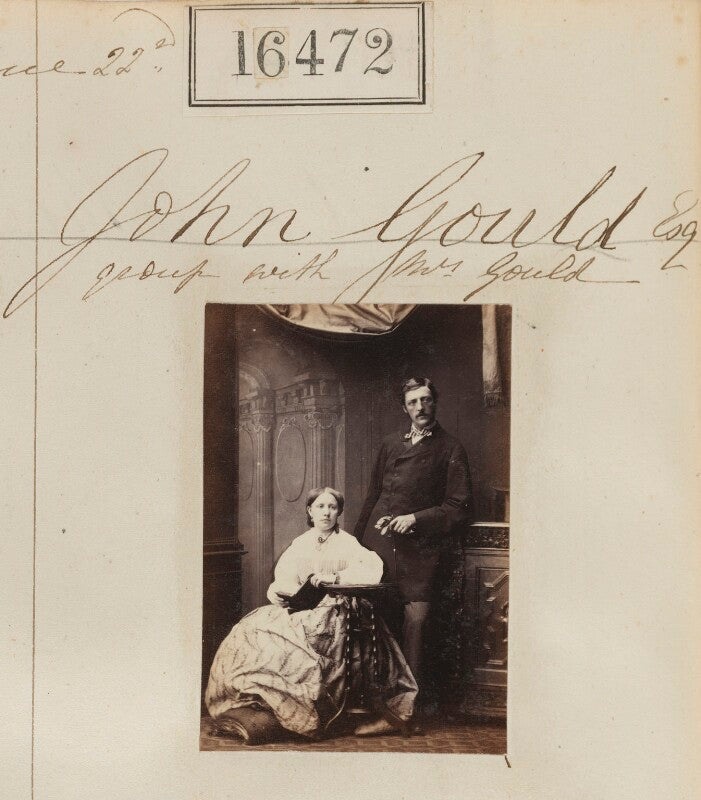 16472
22d
John Gould Esq
group with Mrs Gould